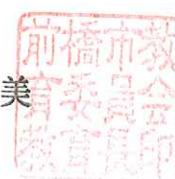 美
前橋市教
育委員会
教育長印